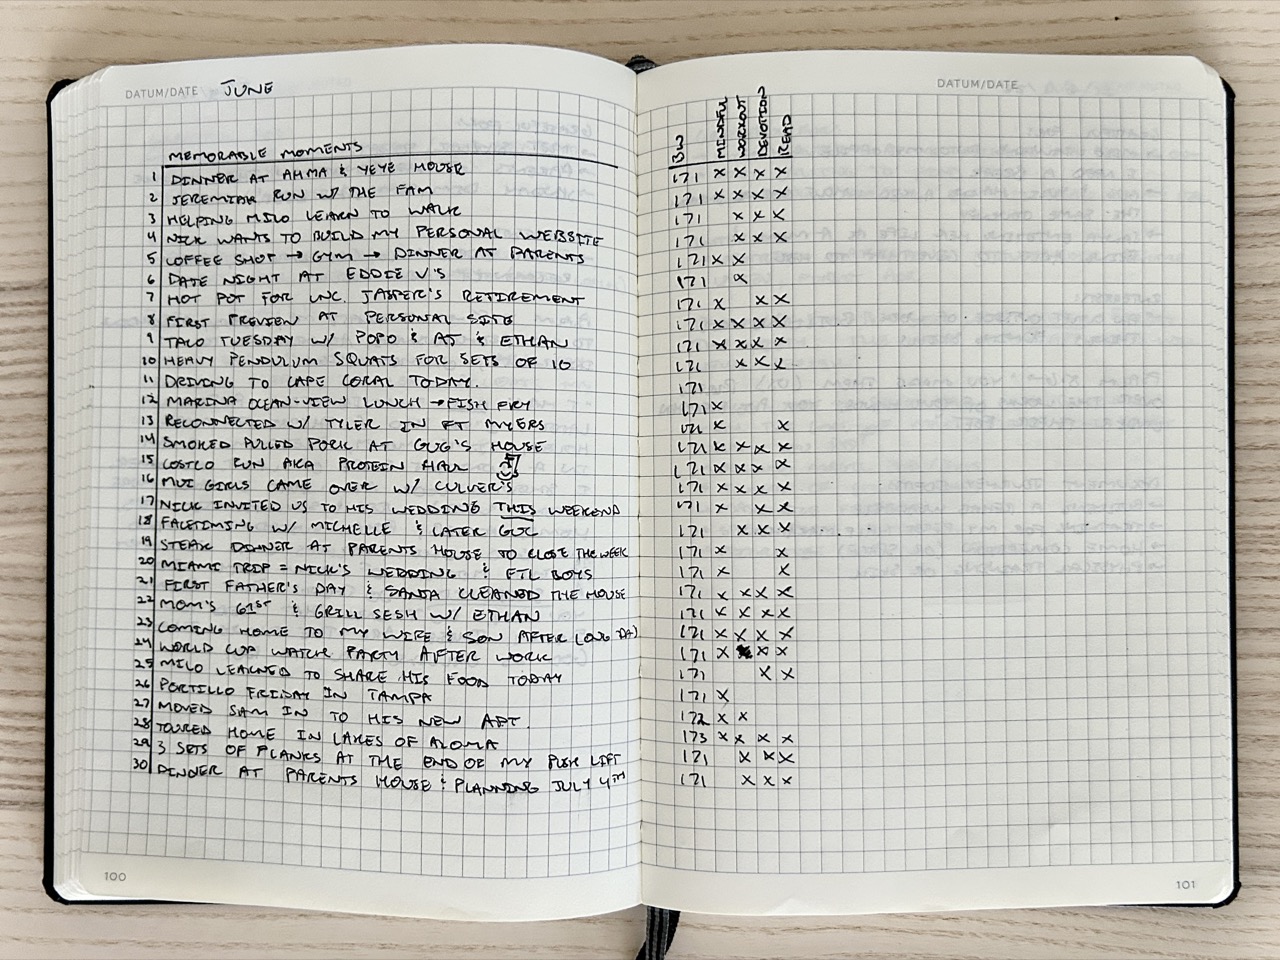 DATUM/DATE JUNE
MEMORABLE MOMENTS
1 DINNER AT AHMA & YEYE HOUSE
2 JEREMIAH RUN W/ THE FAM
3 HELPING MILO LEARN TO WALK
4 NICK WANTS TO BUILD MY PERSONAL WEBSITE
5 COFFEE SHOT → GYM → DINNER AT PARENTS
6 DATE NIGHT AT EDDIE V'S
7 HOT POT FOR UNC. JASPER'S RETIREMENT
8 FIRST PREVIEW AT PERSONAL SITE
9 TACO TUESDAY W/ POPO & AJ & ETHAN
10 HEAVY PENDULUM SQUATS FOR SETS OF 10
11 DRIVING TO CAPE CORAL TODAY.
12 MARINA OCEAN-VIEW LUNCH → FISH FRY
13 RECONNECTED W/ TYLER IN FT MYERS
14 SMOKED PULLED PORK AT GUG'S HOUSE
15 COSTCO RUN AKA PROTEIN HAUL
16 MUI GIRLS CAME OVER W/ CULVER'S
17 NICK INVITED US TO HIS WEDDING THIS WEEKEND
18 FACETIMING W/ MICHELLE & LATER GUC
19 STEAK DINNER AT PARENTS HOUSE TO CLOSE THE WEEK
20 MIAMI TRIP = NICK'S WEDDING & FTL BOYS
21 FIRST FATHER'S DAY & SANTA CLEANED THE HOUSE
22 MOM'S 61ST & GRILL SESH W/ ETHAN
23 COMING HOME TO MY WIFE & SON AFTER LONG DAY
24 WORLD CUP WATCH PARTY AFTER WORK
25 MILO LEARNED TO SHARE HIS FOOD TODAY
26 PORTILLO FRIDAY IN TAMPA
27 MOVED SAM IN TO HIS NEW APT.
28 TOURED HOME IN LAKES OF ALOMA
29 3 SETS OF PLANKS AT THE END OF MY PUSH LIFT
30 DINNER AT PARENTS HOUSE & PLANNING JULY 4TH
100
DATUM/DATE
BW MINDFUL WORKOUT DEVOTION READ
171 X X X X
171 X X X X
171 X X X
171 X X X
171 X X
171 X
171 X X X
171 X X X X
171 X X X X
171 X X X
171
171 X
171 X X
171 X X X X
171 X X X X
171 X X X X
171 X X X
171 X X X
171 X X
171 X X
171 X X X X
171 X X X X
171 X X X X
171 X X X
171 X X
171 X
172 X X
173 X X X X
171 X X X
171 X X X
101